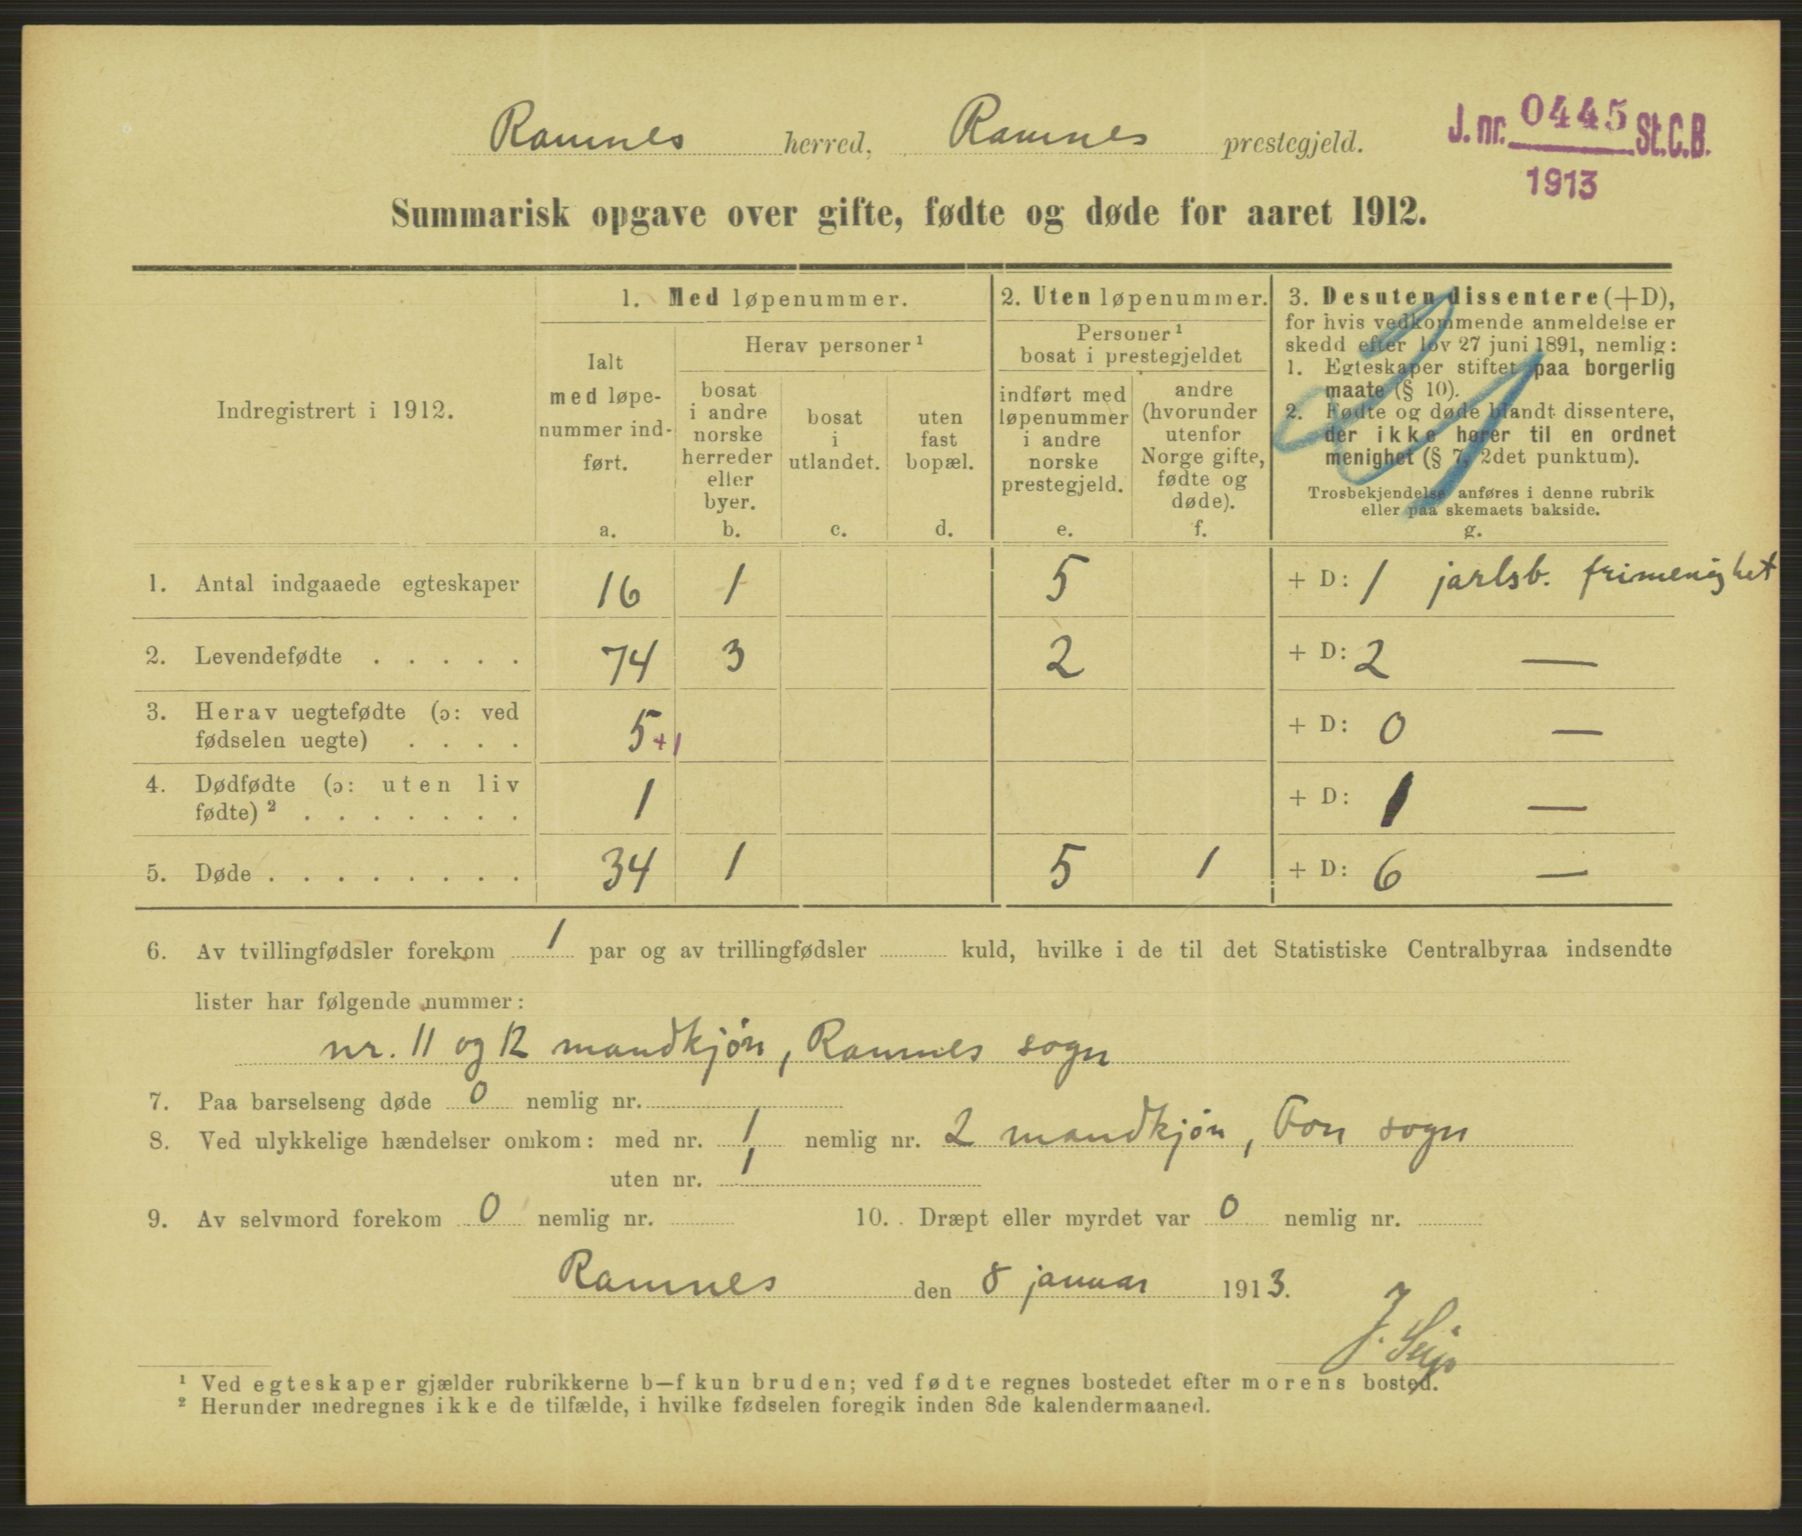 Ramnes herred, Ramnes prestegjeld.
J. nr. 0445 St.C.B.
1913
Summarisk opgave over gifte, fødte og døde for aaret 1912.
Indregistrert i 1912.
1. Med løpenummer.
Ialt
med løpe-
nummer ind-
ført.
a.
Herav personer ¹
bosat
i andre
norske
herreder
eller
byer.
b.
bosat
i
utlandet.
c.
uten
fast
bopæl.
d.
2. Uten løpenummer.
Personer ¹
bosat i prestegjeldet
indført med
løpenummer
i andre
norske
prestegjeld.
e.
andre
(hvorunder
utenfor
Norge gifte,
fødte og
døde).
f.
3. Desuten dissentere (+D),
for hvis vedkommende anmeldelse er
skedd efter lov 27 juni 1891, nemlig:
1. Egteskaper stiftet paa borgerlig
maate (§ 10).
2. Fødte og døde blandt dissentere,
der ikke hører til en ordnet
menighet (§ 7, 2det punktum).
Trosbekjendelse anføres i denne rubrik
eller paa skemaets bakside.
g.
1. Antal indgaaede egteskaper 16 1 5 + D: 1 jarlsb. frimenighet
2. Levendefødte . . . . . 74 3 2 + D: 2 —
3. Herav uegtefødte (ɔ: ved
fødselen uegte) . . . . 5 +1 + D: 0 —
4. Dødfødte (ɔ: uten liv
fødte) ² . . . . . . . 1 + D: 1 —
5. Døde . . . . . . . . 34 1 5 1 + D: 6 —
6. Av tvillingfødsler forekom 1 par og av trillingfødsler kuld, hvilke i de til det Statistiske Centralbyraa indsendte
lister har følgende nummer:
nr. 11 og 12 mandkjøn, Ramnes sogn
7. Paa barselseng døde 0 nemlig nr.
8. Ved ulykkelige hændelser omkom: med nr. 1 nemlig nr. 2 mandkjøn, Fon sogn
uten nr. 1
9. Av selvmord forekom 0 nemlig nr. 10. Dræpt eller myrdet var 0 nemlig nr.
Ramnes den 8 januar 1913.
J.
¹ Ved egteskaper gjælder rubrikkerne b—f kun bruden; ved fødte regnes bostedet efter morens bosted.
² Herunder medregnes ikke de tilfælde, i hvilke fødselen foregik inden 8de kalendermaaned.